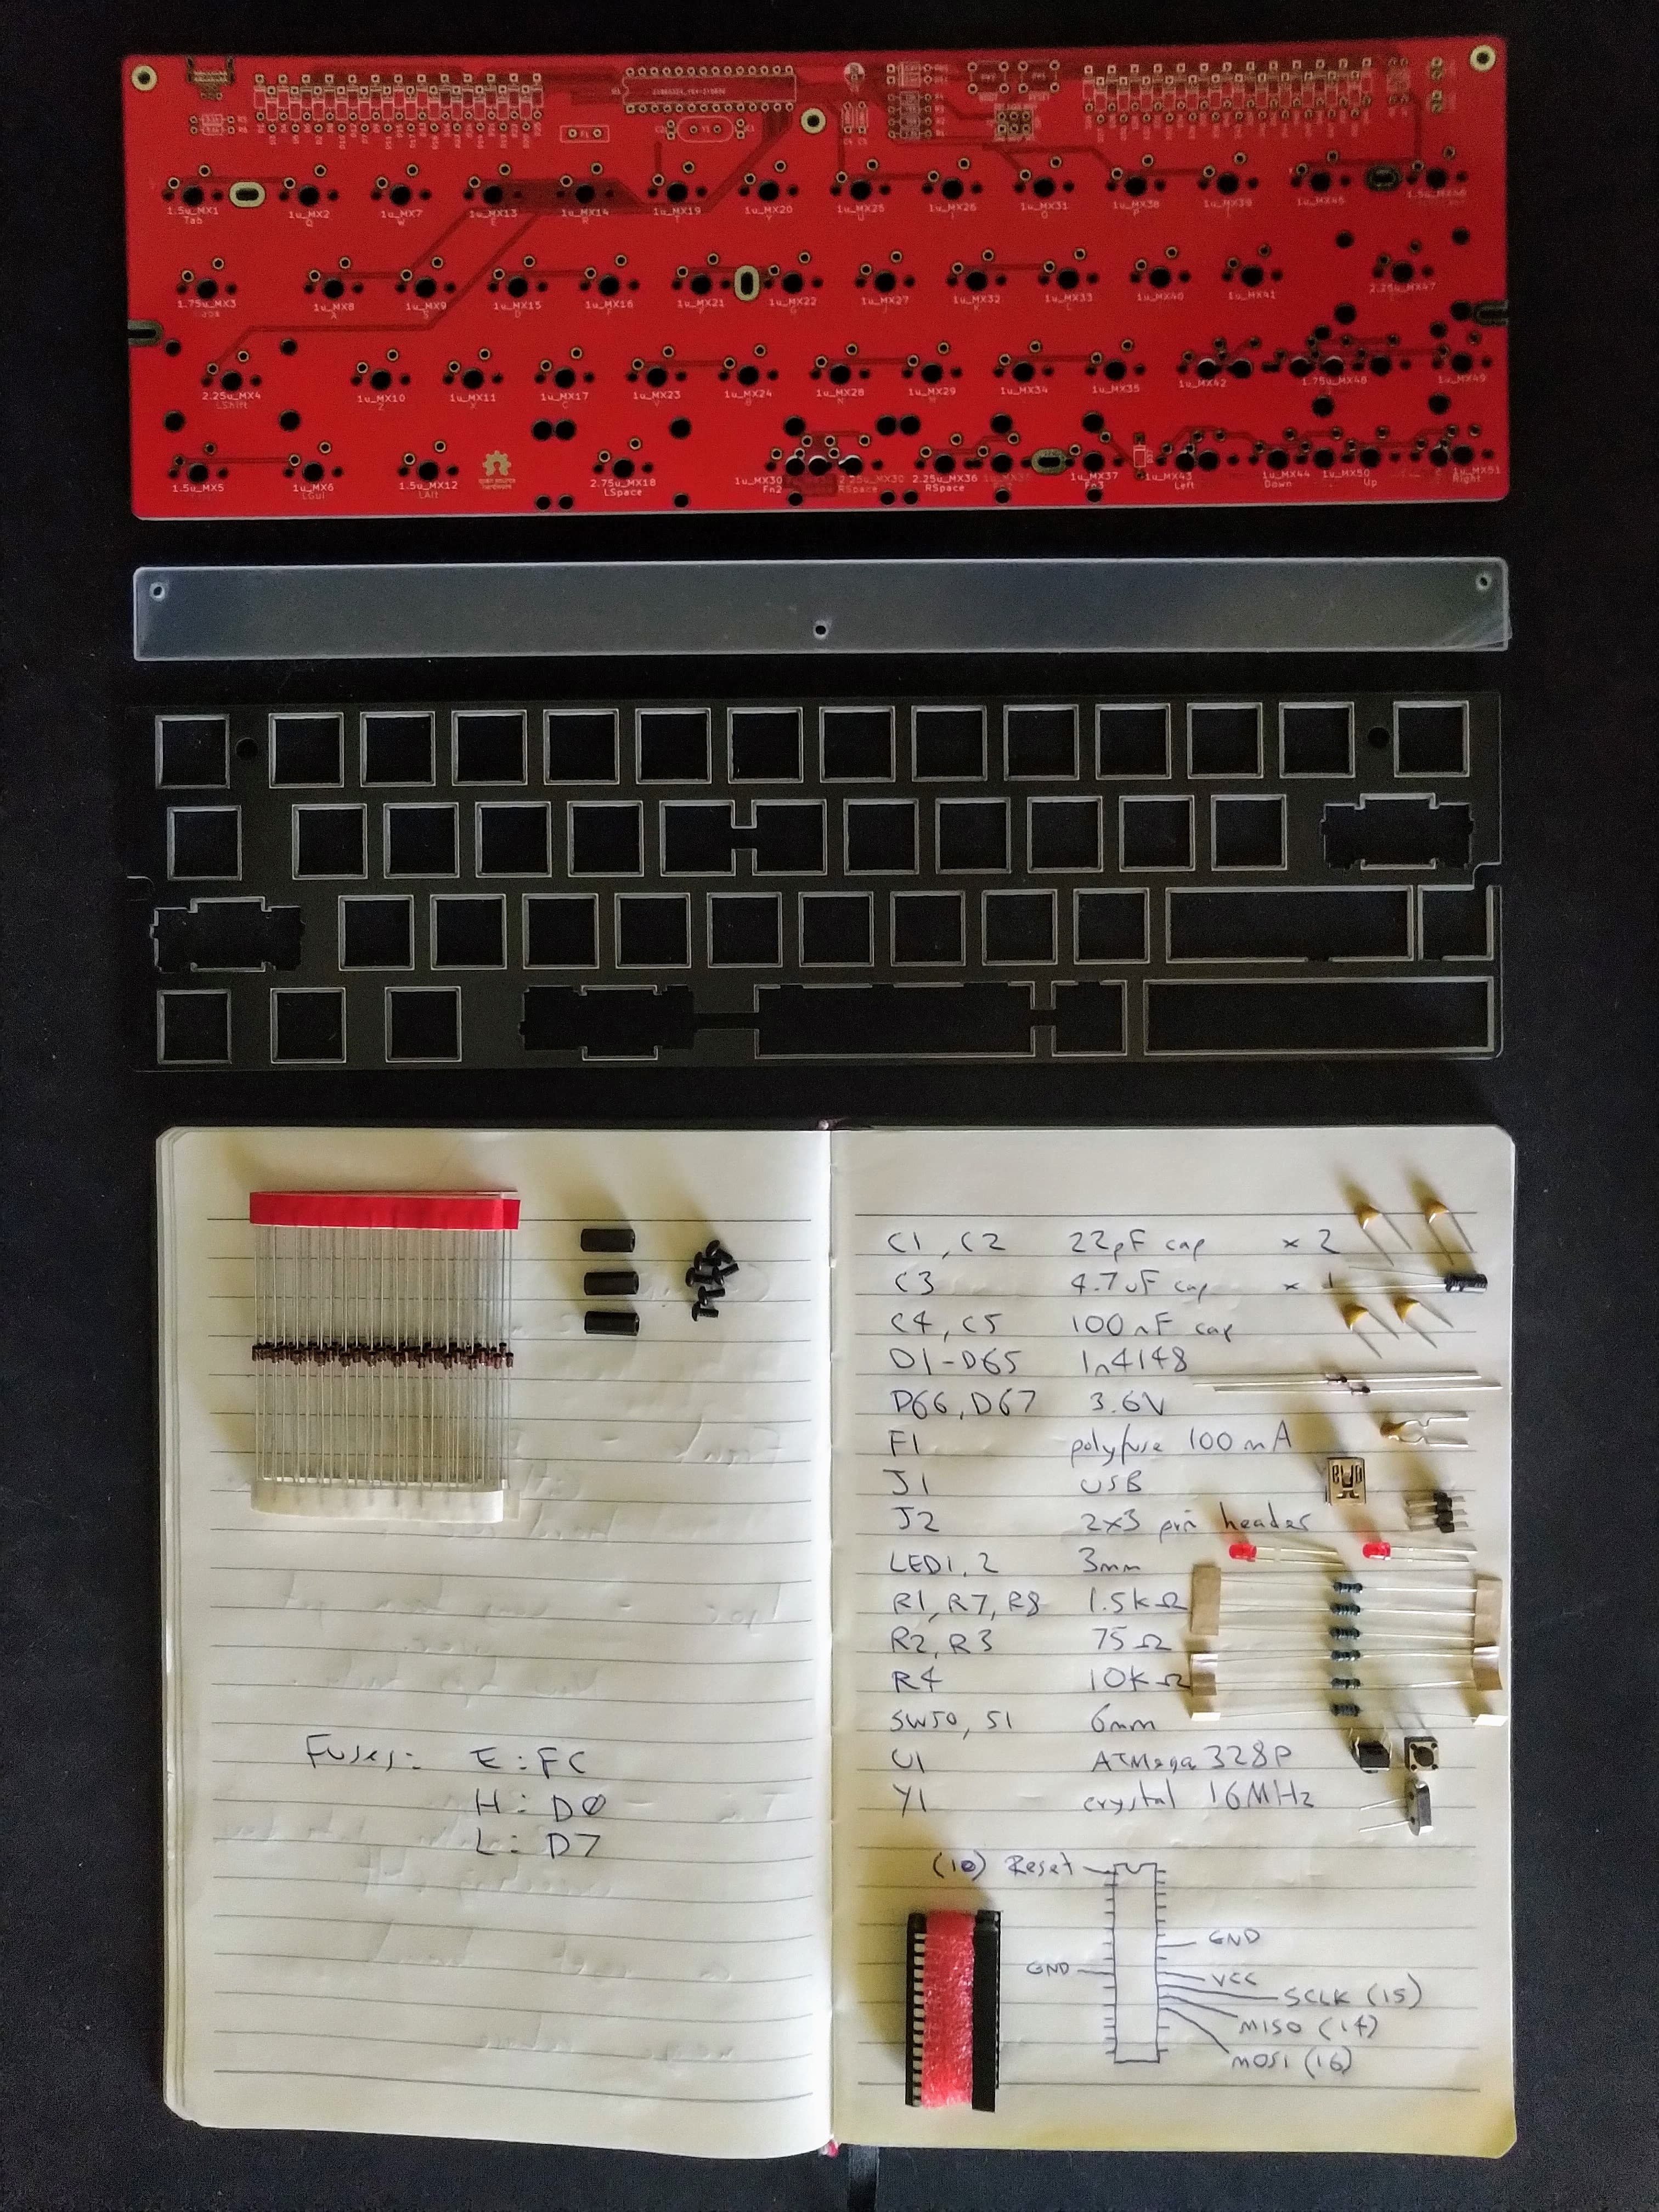 1.5u_MX1 1u_MX2 1u_MX7 1u_MX13 1u_MX14 1u_MX19 1u_MX20 1u_MX25 1u_MX26 1u_MX31 1u_MX38 1u_MX39
Tab Q W E R
1.75u_MX3 1u_MX8 1u_MX9 1u_MX15 1u_MX16 1u_MX21 1u_MX22 1u_MX27 1u_MX32 1u_MX33 1u_MX40 1u_MX41 2.25u_MX47
2.25u_MX4 1u_MX10 1u_MX11 1u_MX17 1u_MX23 1u_MX24 1u_MX28 1u_MX29 1u_MX34 1u_MX35 1u_MX42 1.75u_MX48 1u_MX49
LShift Z X C V B N M
1.5u_MX5 1u_MX6 1.5u_MX12 2.75u_MX18 1u_MX30 2.25u_MX36 1u_MX37 1u_MX43 1u_MX44 1u_MX50 1u_MX51
LGui LAlt open source hardware LSpace Fn2 RSpace RSpace Fn3 Left Down Up Right
C1, C2 22pF cap x 2
C3 4.7uF cap x 1
C4, C5 100nF cap
D1-D65 1n4148
D66, D67 3.6V
F1 polyfuse 100mA
J1 USB
J2 2x3 pin header
LED1, 2 3mm
R1, R7, R8 1.5kΩ
R2, R3 75Ω
R4 10kΩ
SW50, 51 6mm
U1 ATMega328P
Y1 crystal 16MHz
Fuses: E: FC
H: D0
L: D7
(10) Reset
GND
GND
VCC
SCLK (15)
MISO (14)
MOSI (16)